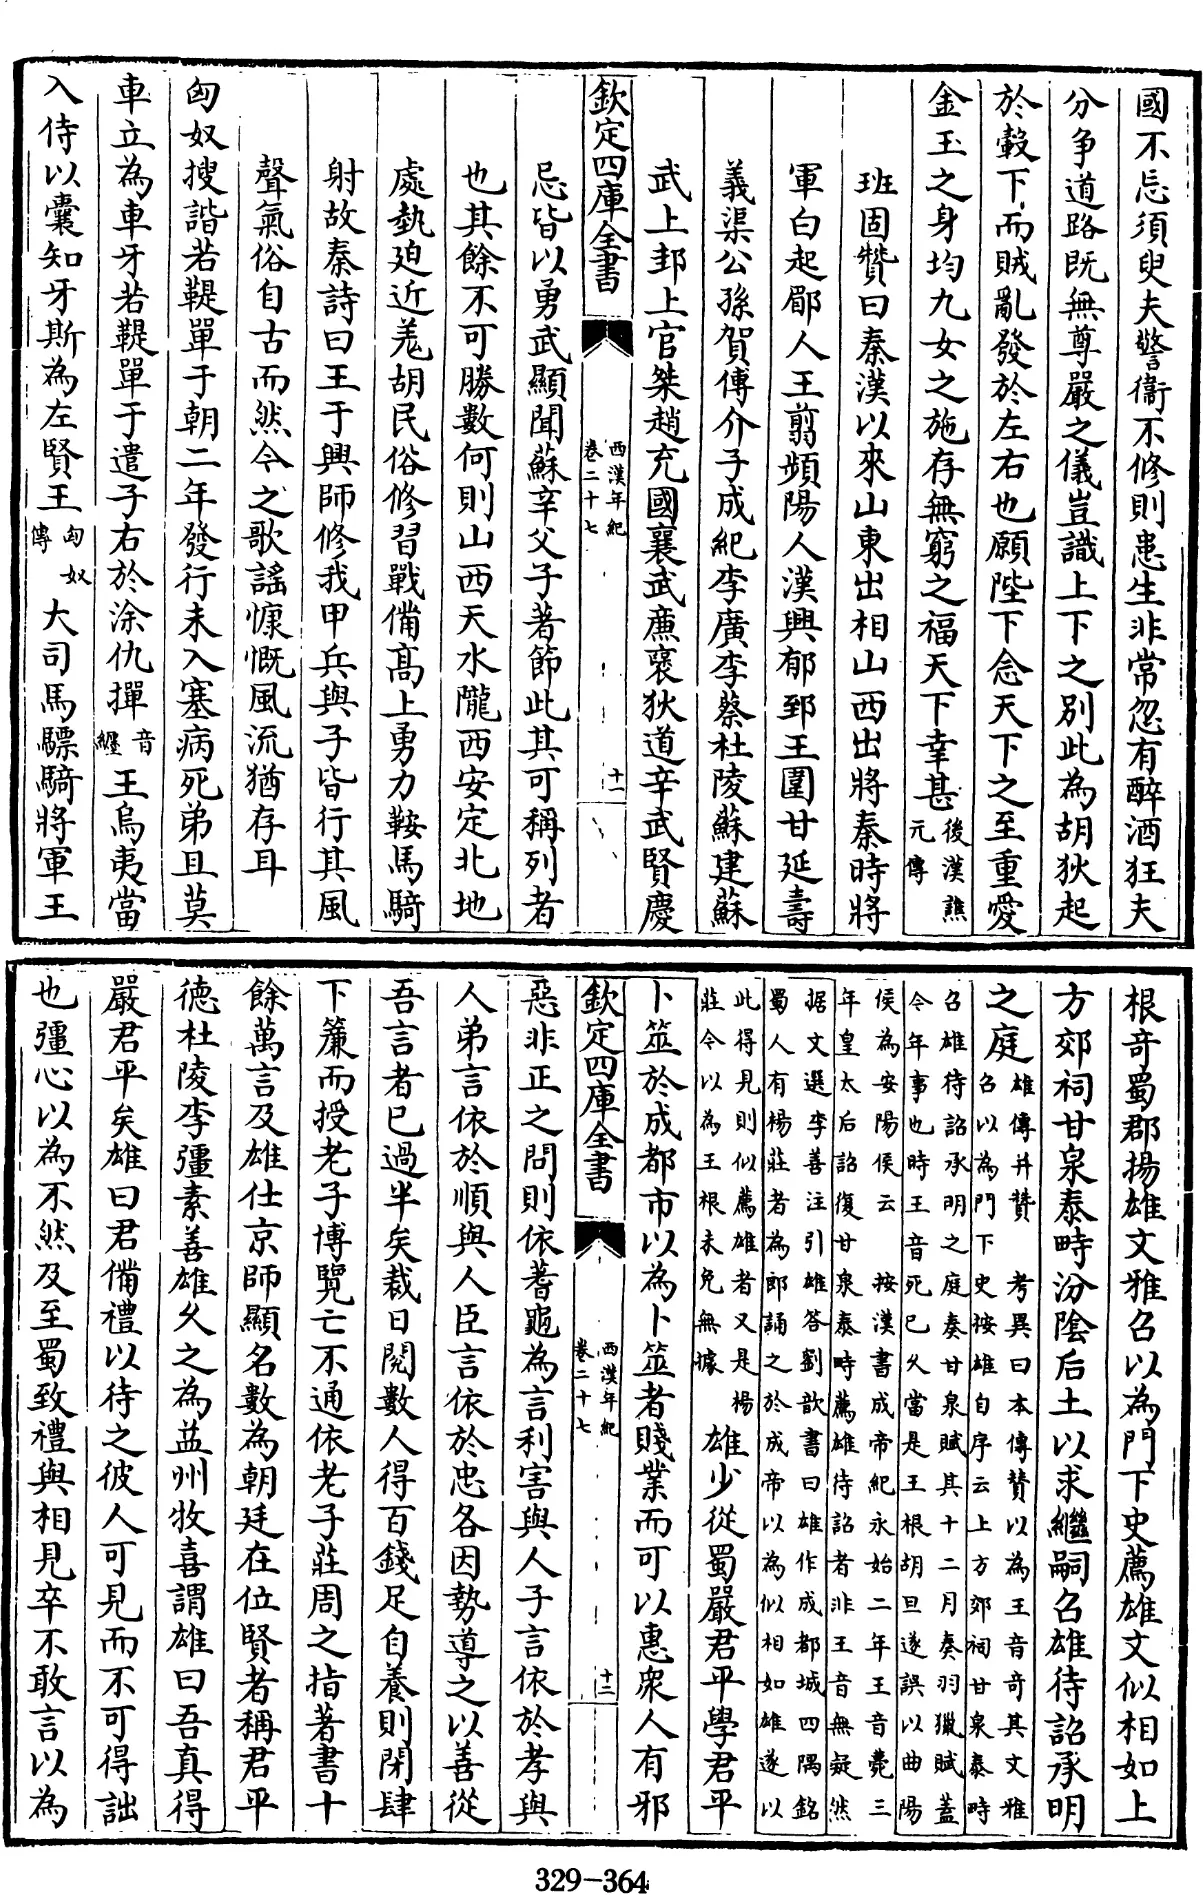 國不忘須臾夫警衛不修則患生非常忽有醉酒狂夫
分争道路既無尊嚴之儀豈識上下之别此為胡狄起
於轂下而賊亂發於左右也願陛下念天下之至重愛
金玉之身均九女之施存無窮之福天下幸甚後漢譙
元傳
班固贊曰秦漢以來山東出相山西出將秦時將
軍白起郿人王翦頻陽人漢興郁郅王圍甘延壽
義渠公孫賀傅介子成紀李廣李蔡杜陵蘇建蘇
武上邽上官桀趙充國襄武廉襃狄道辛武賢慶
欽定四庫全書
西漢年紀
卷二十七
十一
忌皆以勇武顯聞蘇辛父子著節此其可稱列者
也其餘不可勝數何則山西天水隴西安定北地
處埶迫近羗胡民俗修習戰備髙上勇力鞍馬騎
射故秦詩曰王于興師修我甲兵與子皆行其風
聲氣俗自古而然今之歌謡慷慨風流猶存耳
匈奴搜諧若鞮單于朝二年發行未入塞病死弟且莫
車立為車牙若鞮單于遣子右於涂仇撣音
纒王烏夷當
入侍以囊知牙斯為左賢王匈奴
傳大司馬驃騎將軍王
根竒蜀郡揚雄文雅召以為門下史薦雄文似相如上
方郊祠甘泉泰畤汾隂后土以求繼嗣召雄待詔承明
之庭雄傳并贊 考異曰本傳贊以為王音竒其文雅
召以為門下史按雄自序云上方郊祠甘泉泰畤
召雄待詔承明之庭奏甘泉賦其十二月奏羽獵賦蓋
今年事也時王音死已久當是王根胡旦遂誤以曲陽
侯為安陽侯云 按漢書成帝紀永始二年王音薨三
年皇太后詔復甘泉泰畤薦雄待詔者非王音無疑然
据文選李善注引雄答劉歆書曰雄作成都城四隅銘
蜀人有楊莊者為郎誦之於成帝以為似相如雄遂以
此得見則似薦雄者又是楊
莊令以為王根未免無據雄少從蜀嚴君平學君平
卜筮於成都市以為卜筮者賤業而可以惠衆人有邪
欽定四庫全書
西漢年紀
卷二十七
十二
惡非正之問則依蓍龜為言利害與人子言依於孝與
人弟言依於順與人臣言依於忠各因勢導之以善從
吾言者已過半矣裁日閲數人得百錢足自養則閉肆
下簾而授老子博覽亡不通依老子莊周之指著書十
餘萬言及雄仕京師顯名數為朝廷在位賢者稱君平
德杜陵李彊素善雄久之為益州牧喜謂雄曰吾真得
嚴君平矣雄曰君備禮以待之彼人可見而不可得詘
也彊心以為不然及至蜀致禮與相見卒不敢言以為
329-364